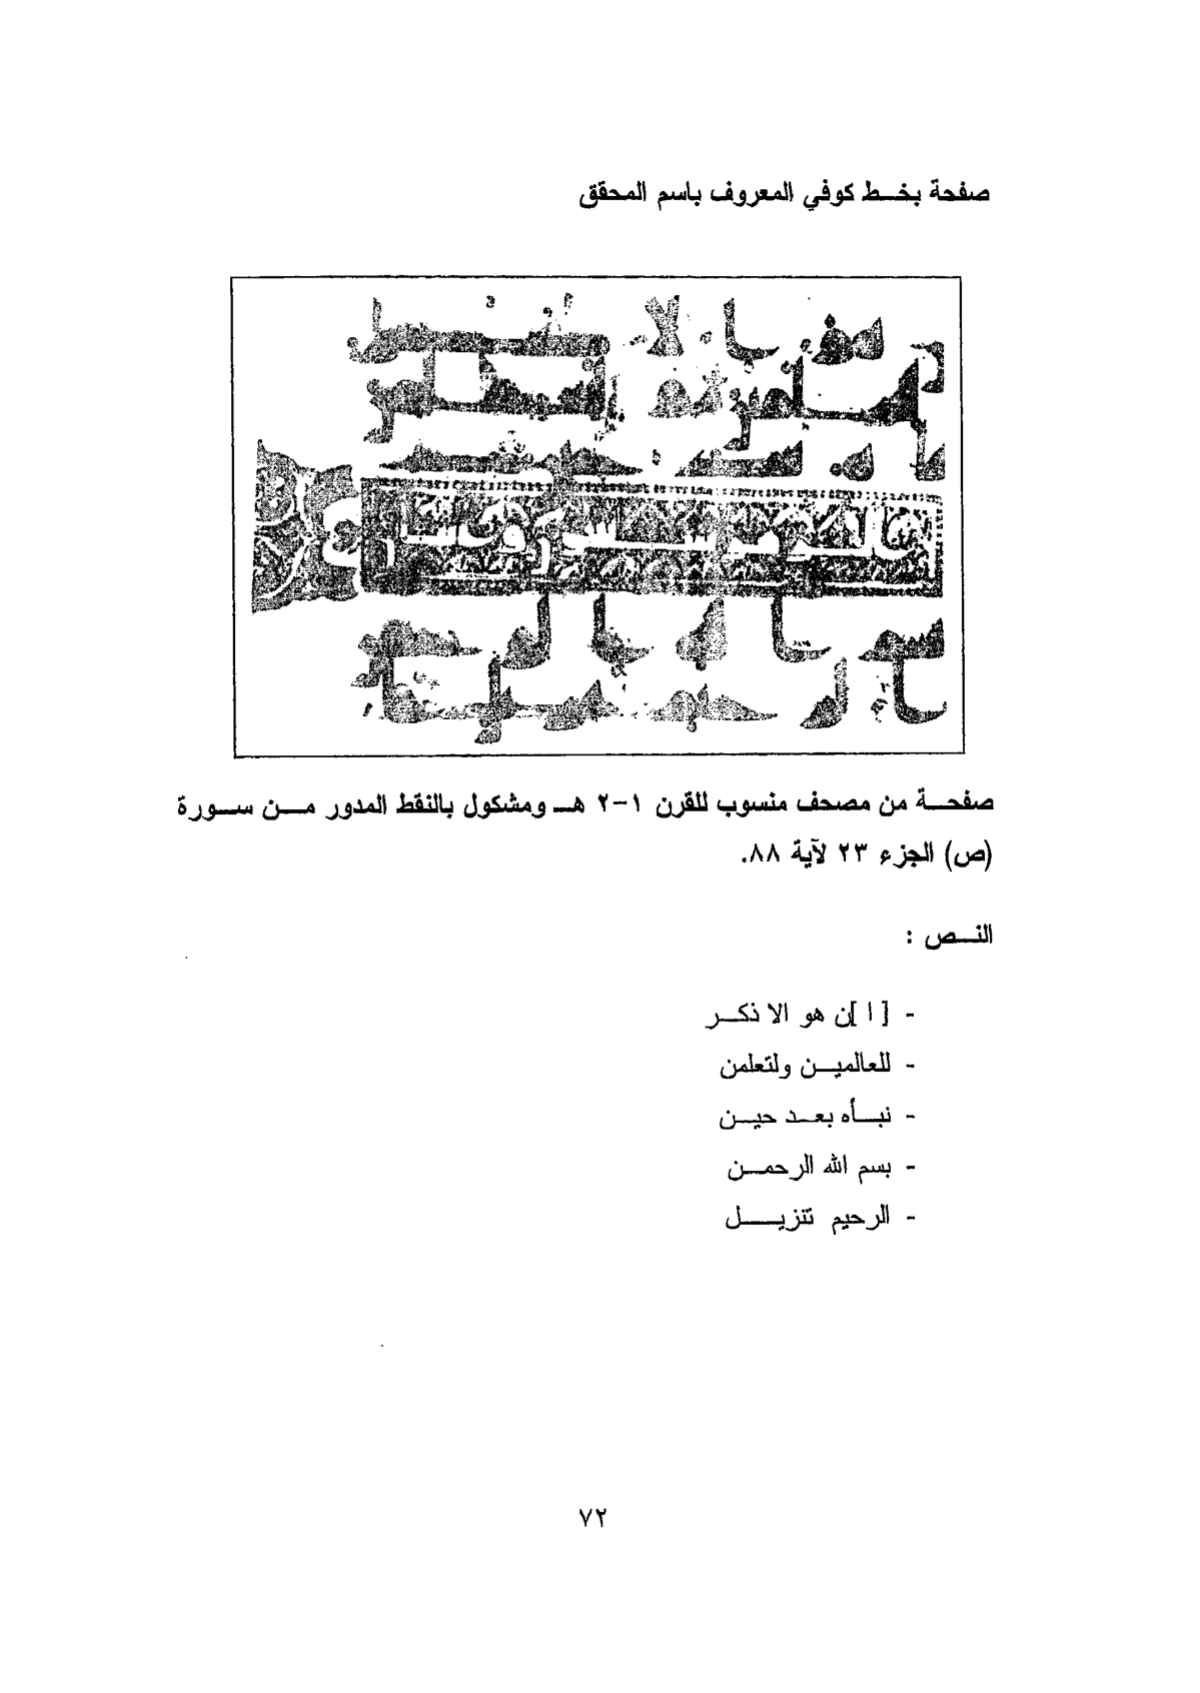 صفحة بخـــط كوفي المعروف باسم المحقق
صفحـــة من مصحف منسوب للقرن ١-٢ هـــ ومشكول بالنقط المدور مـــن ســـورة
(ص) الجزء ٢٣ لآية ٨٨.
النـــص :
- [ ا ]ن هو الا ذكـــر
- للعالميـــن ولتعلمن
- نبـــأه بعـــد حيـــن
- بسم الله الرحمـــن
- الرحيم تنزيـــــل
٧٢